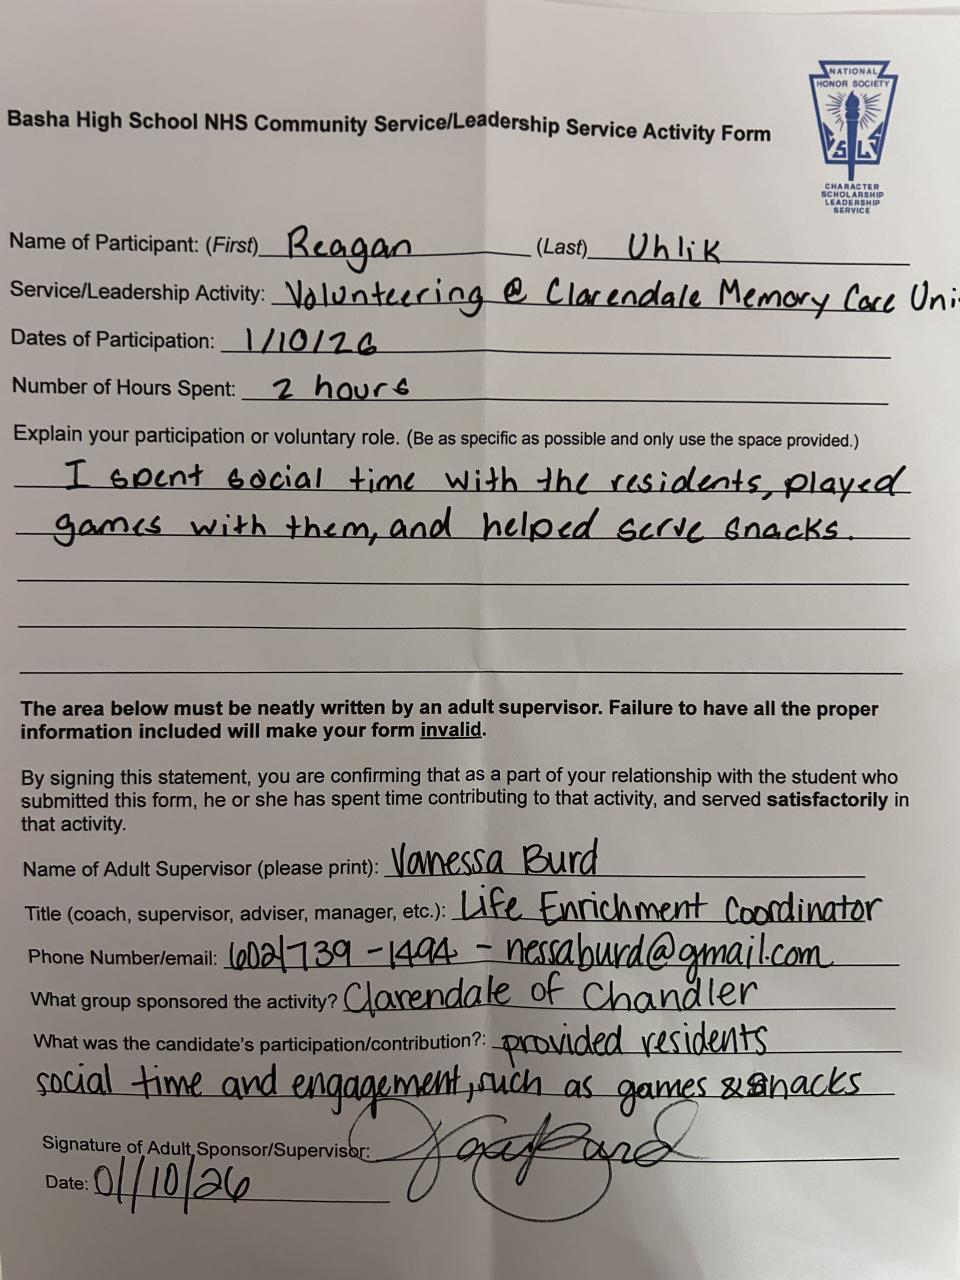 NATIONAL
HONOR SOCIETY
CHARACTER
SCHOLARSHIP
LEADERSHIP
SERVICE
Basha High School NHS Community Service/Leadership Service Activity Form
Name of Participant: (First) Reagan (Last) Uhlik
Service/Leadership Activity: Volunteering @ Clarendale Memory Care Uni
Dates of Participation: 1/10/26
Number of Hours Spent: 2 hours
Explain your participation or voluntary role. (Be as specific as possible and only use the space provided.)
I spent social time with the residents, played
games with them, and helped serve snacks.
The area below must be neatly written by an adult supervisor. Failure to have all the proper
information included will make your form invalid.
By signing this statement, you are confirming that as a part of your relationship with the student who
submitted this form, he or she has spent time contributing to that activity, and served satisfactorily in
that activity.
Name of Adult Supervisor (please print): Vanessa Burd
Title (coach, supervisor, adviser, manager, etc.): Life Enrichment Coordinator
Phone Number/email: (602)739-1494 - nessaburd@gmail.com
What group sponsored the activity? Clarendale of Chandler
What was the candidate's participation/contribution?: provided residents
social time and engagement, such as games & snacks
Signature of Adult Sponsor/Supervisor:
Date: 01/10/26